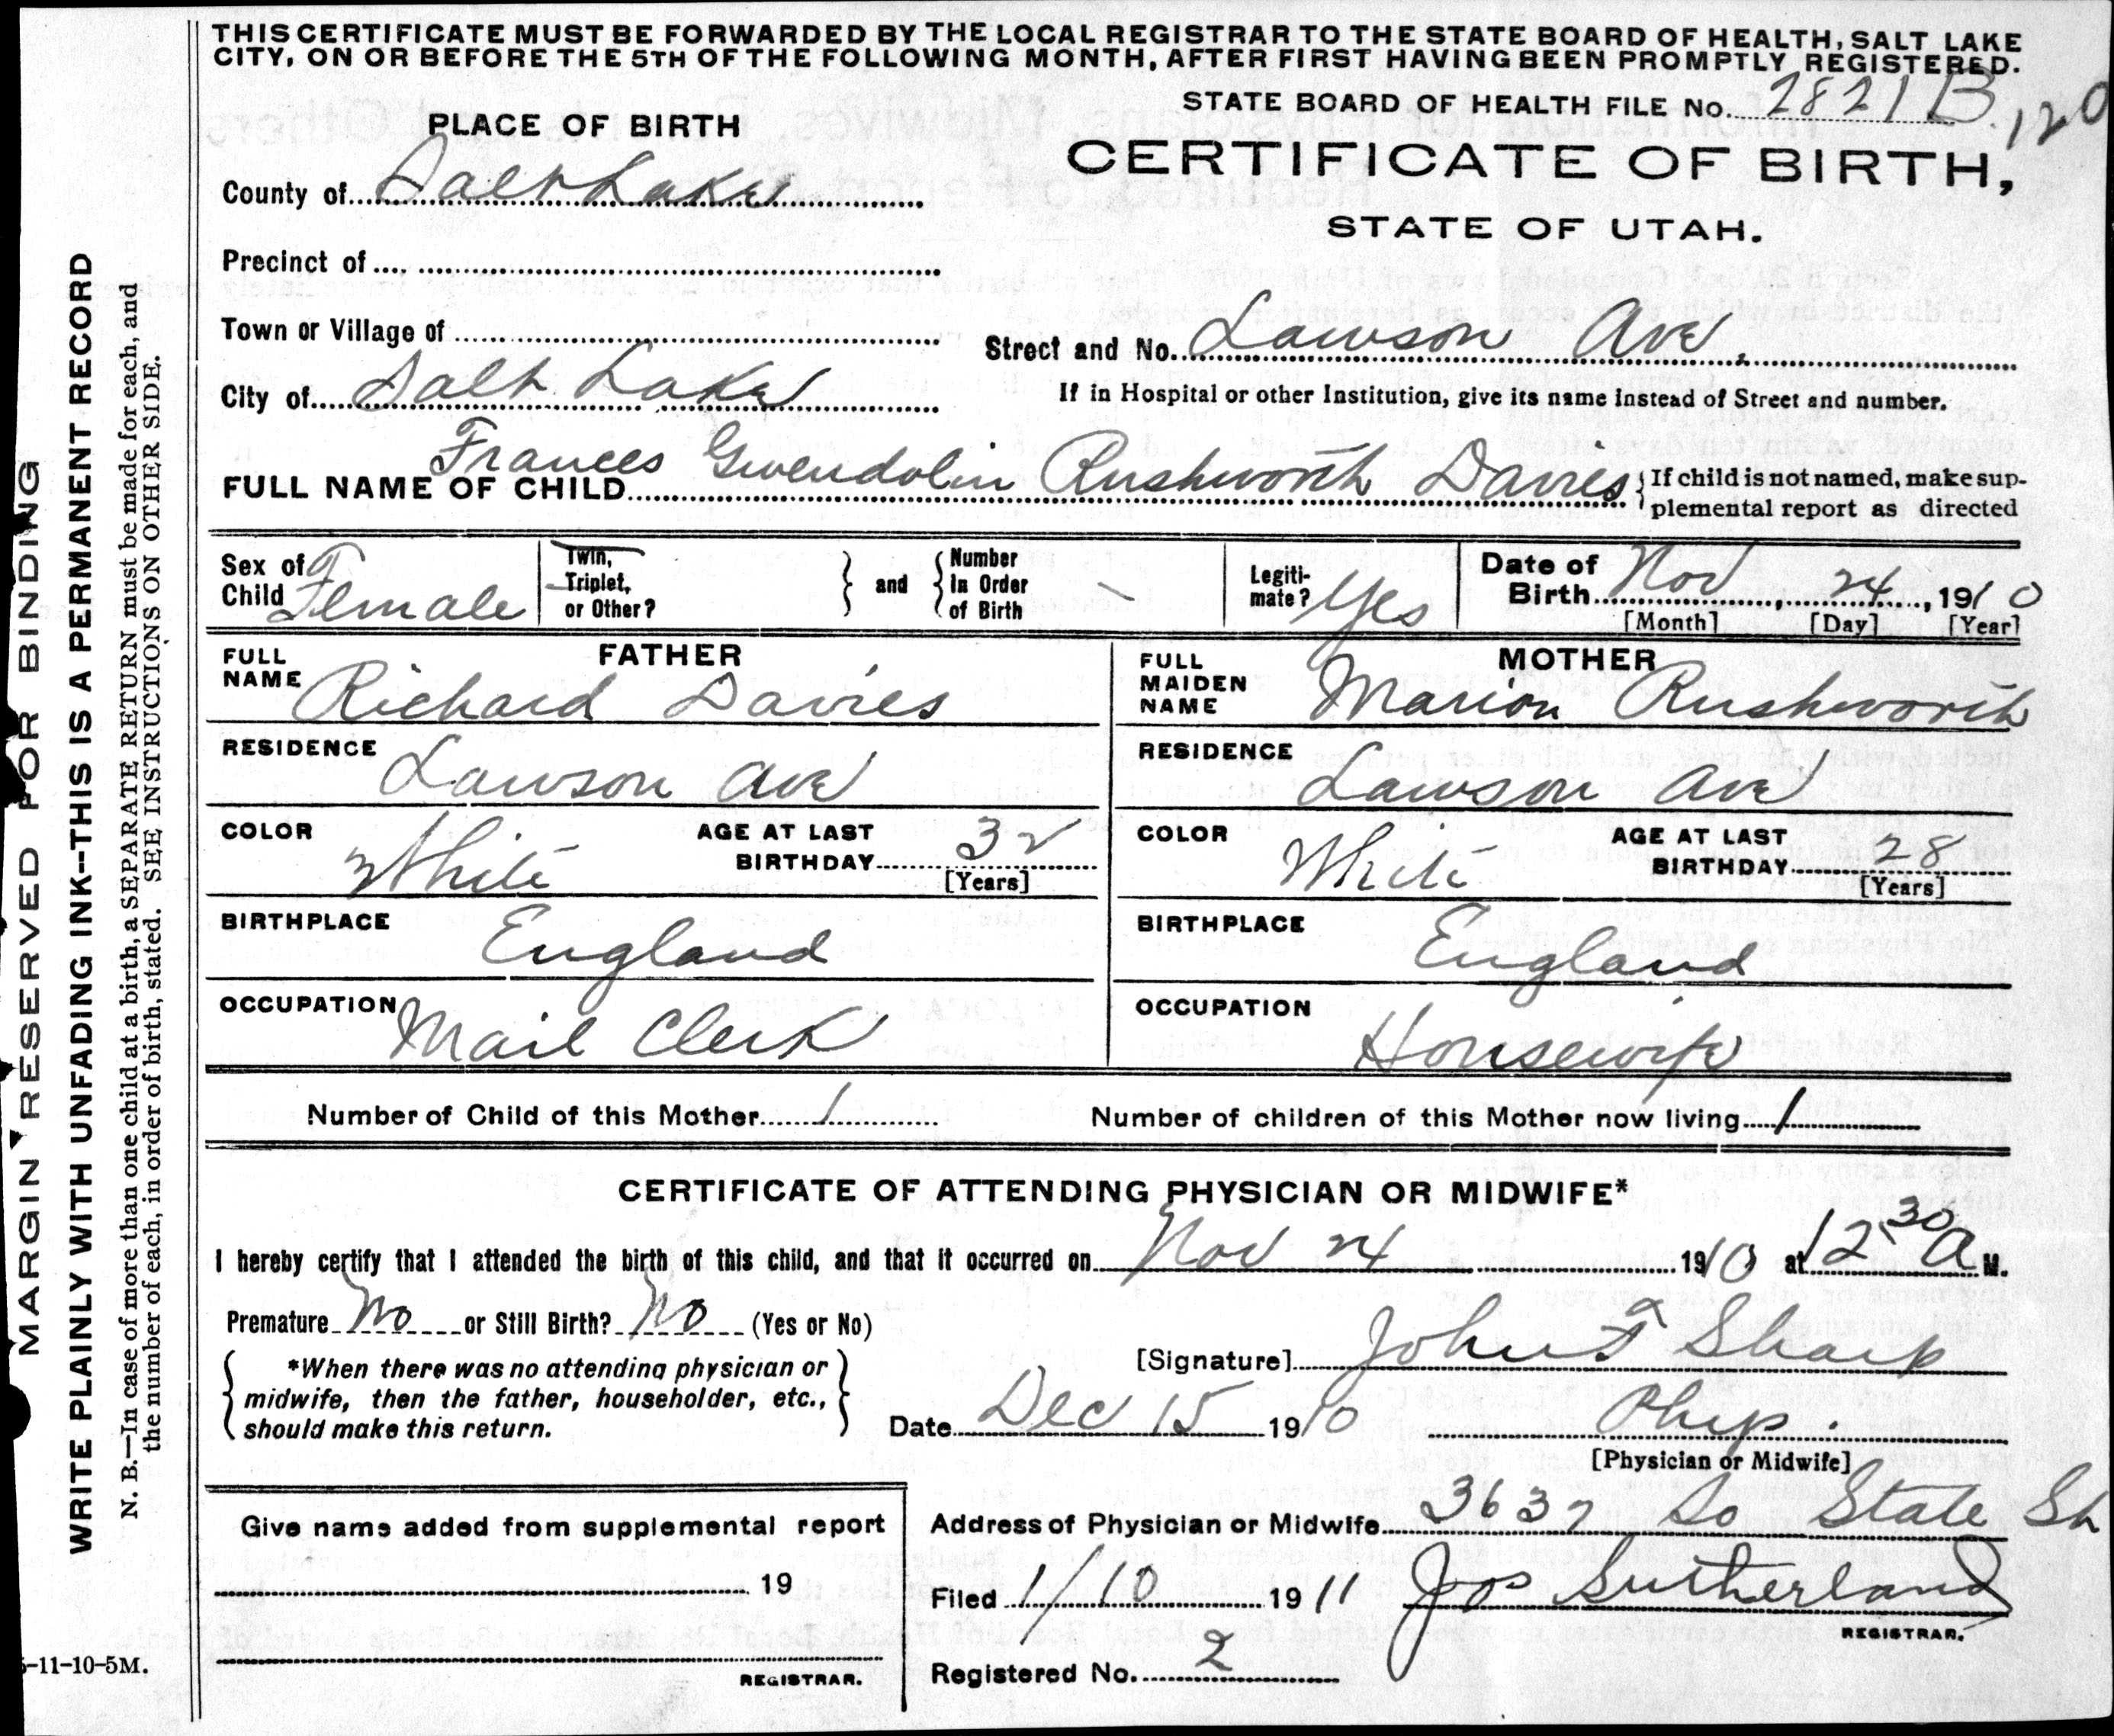 THIS CERTIFICATE MUST BE FORWARDED BY THE LOCAL REGISTRAR TO THE STATE BOARD OF HEALTH, SALT LAKE
CITY, ON OR BEFORE THE 5TH OF THE FOLLOWING MONTH, AFTER FIRST HAVING BEEN PROMPTLY REGISTERED.
STATE BOARD OF HEALTH FILE No. 2821 B. 120
PLACE OF BIRTH
CERTIFICATE OF BIRTH,
STATE OF UTAH.
County of Salt Lake
Precinct of
Town or Village of
Street and No. Lawson Ave.
City of Salt Lake
If in Hospital or other Institution, give its name instead of Street and number.
FULL NAME OF CHILD Frances Gwendolin Rushworth Davies
If child is not named, make sup-
plemental report as directed
Sex of Child Female
Twin, Triplet, or Other?
and
Number In Order of Birth —
Legiti-mate? Yes
Date of Birth Nov, 24, 1910
[Month] [Day] [Year]
FATHER
FULL NAME Richard Davies
RESIDENCE Lawson Ave
COLOR White AGE AT LAST BIRTHDAY 32
[Years]
BIRTHPLACE England
OCCUPATION Mail Clerk
MOTHER
FULL MAIDEN NAME Marion Rushworth
RESIDENCE Lawson Ave
COLOR White AGE AT LAST BIRTHDAY 28
[Years]
BIRTHPLACE England
OCCUPATION Housewife
Number of Child of this Mother 1 Number of children of this Mother now living 1
CERTIFICATE OF ATTENDING PHYSICIAN OR MIDWIFE*
I hereby certify that I attended the birth of this child, and that it occurred on Nov 24 1910 at 12 30 a M.
Premature No or Still Birth? No (Yes or No)
*When there was no attending physician or
midwife, then the father, householder, etc.,
should make this return.
[Signature] John Sharp
Date Dec 15 1910 Phys.
[Physician or Midwife]
Give name added from supplemental report
19
REGISTRAR.
Address of Physician or Midwife 3637 So State St
Filed 1/10 1911 Jos Sutherland
REGISTRAR.
Registered No. 2
MARGIN RESERVED FOR BINDING
WRITE PLAINLY WITH UNFADING INK--THIS IS A PERMANENT RECORD
N. B.—In case of more than one child at a birth, a SEPARATE RETURN must be made for each, and
the number of each, in order of birth, stated. SEE INSTRUCTIONS ON OTHER SIDE.
-11-10-5M.